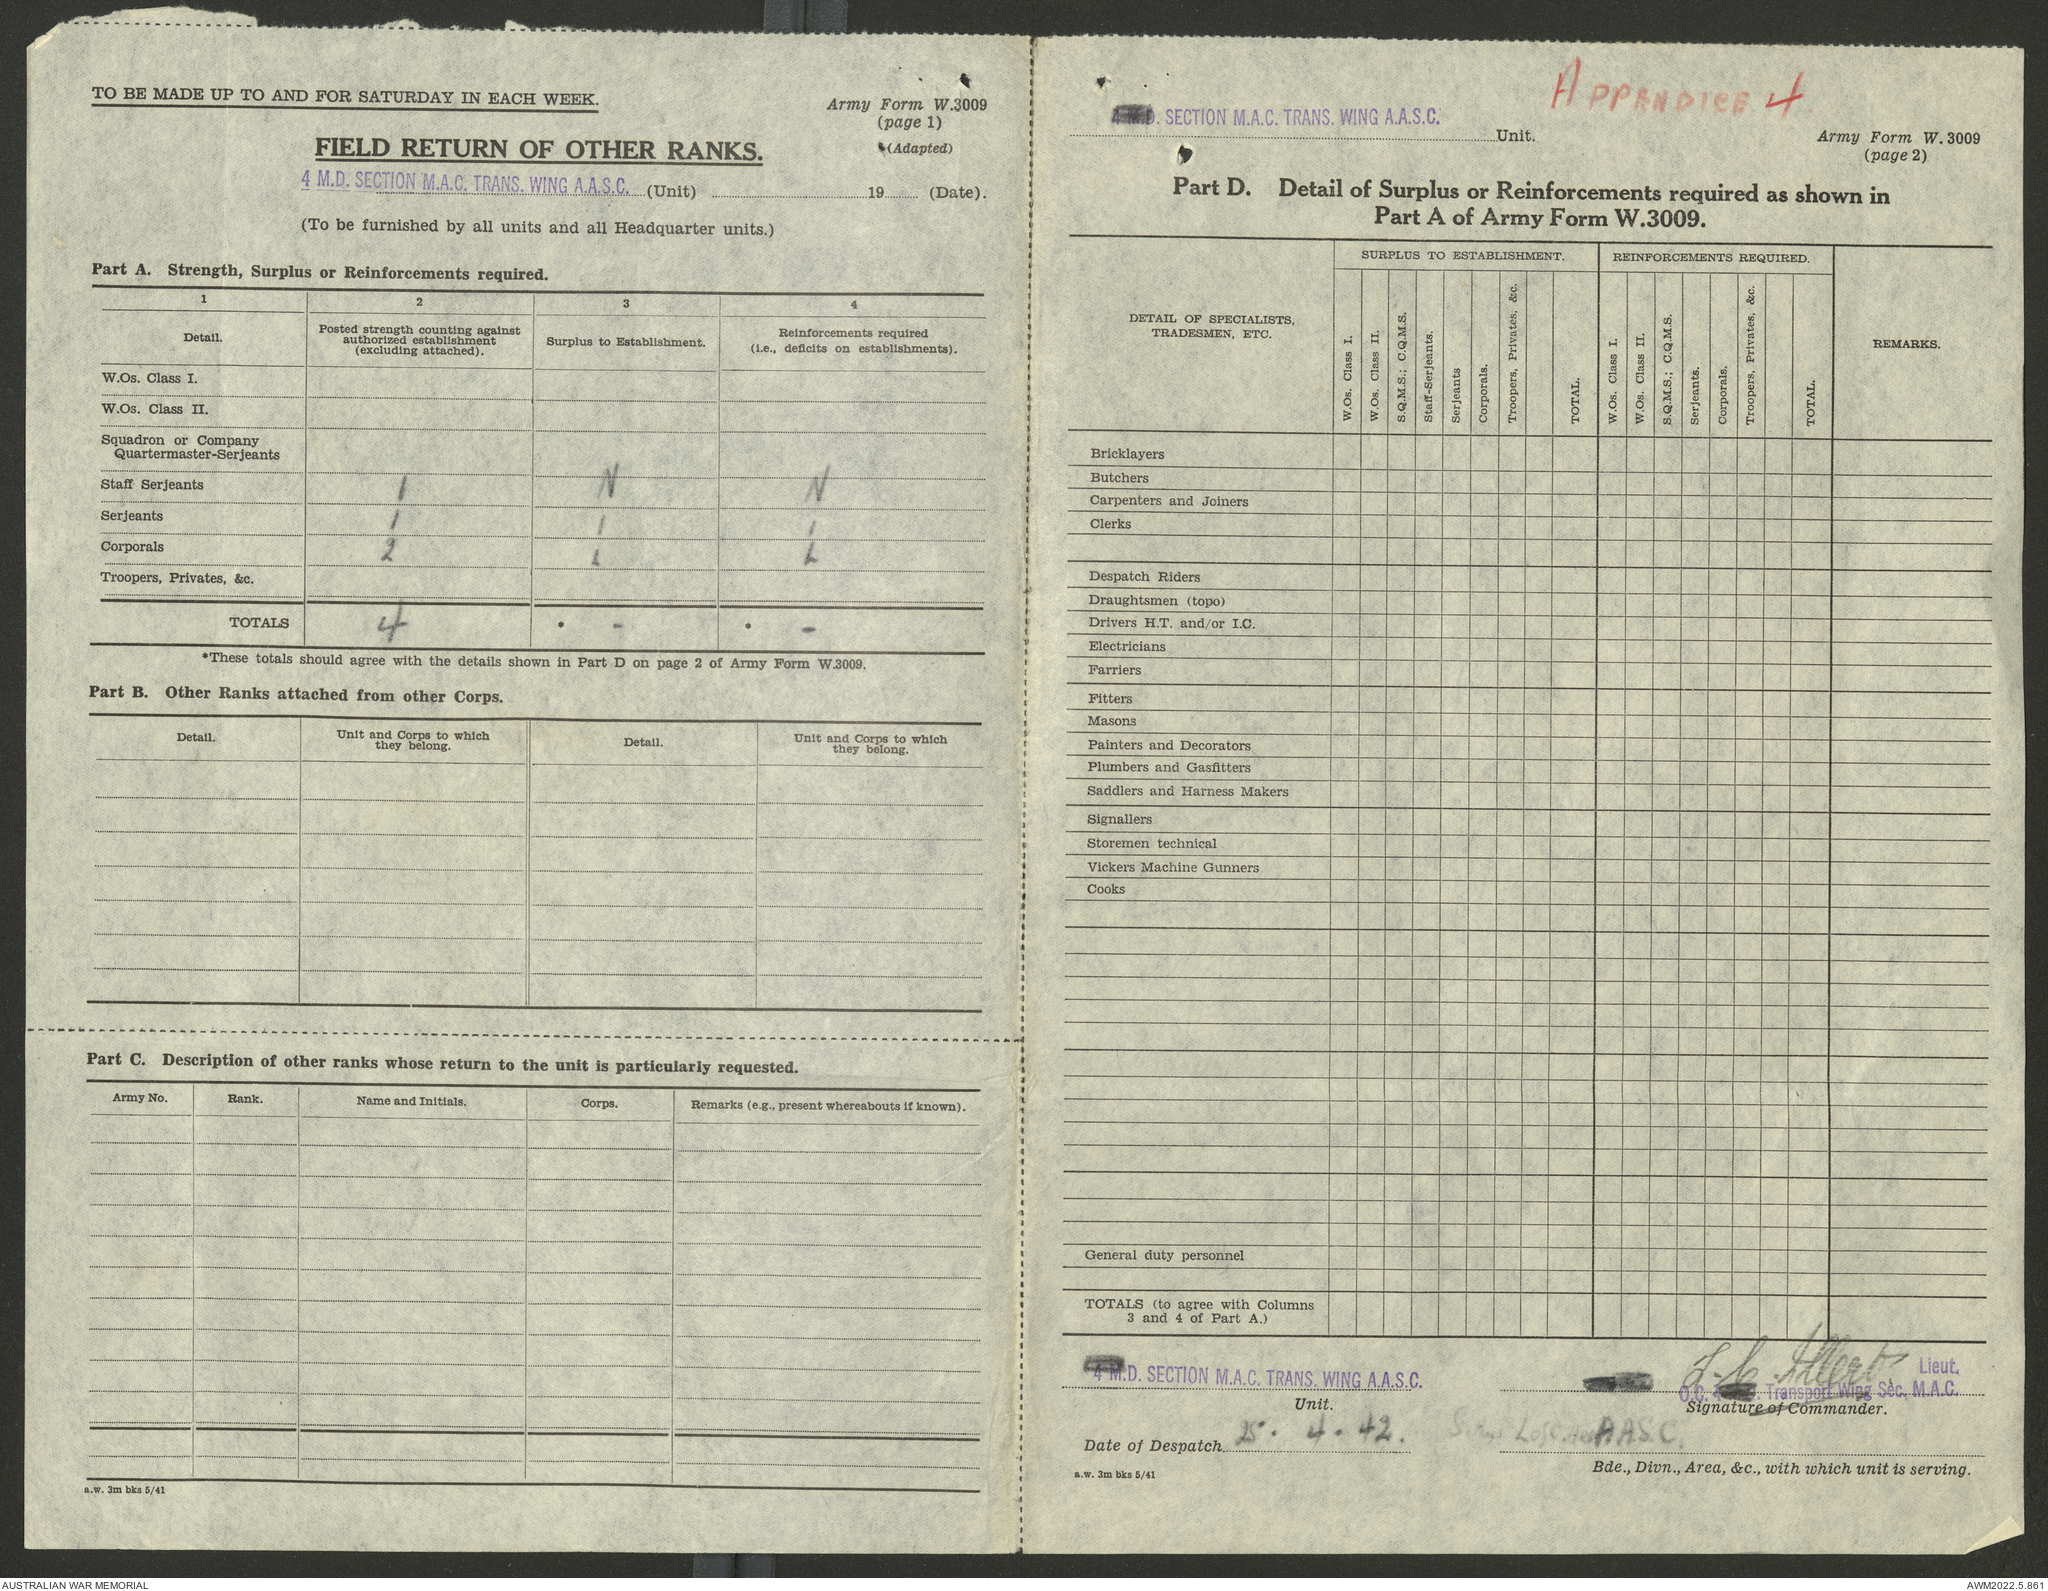 TO BE MADE UP TO AND FOR SATURDAY IN EACH WEEK.
Army Form W.3009
(page 1)
(Adapted)
FIELD RETURN OF OTHER RANKS.
4 M.D. SECTION M.A.C. TRANS. WING A.A.S.C. (Unit) 19 (Date).
(To be furnished by all units and all Headquarter units.)
Part A. Strength, Surplus or Reinforcements required.
1 2 3 4
Detail.
Posted strength counting against
authorized establishment
(excluding attached).
Surplus to Establishment.
Reinforcements required
(i.e., deficits on establishments).
W.Os. Class I.
W.Os. Class II.
Squadron or Company
Quartermaster-Serjeants
Staff Serjeants 1 N N
Serjeants 1 I I
Corporals 2 L L
Troopers, Privates, &c.
TOTALS 4 * - * -
*These totals should agree with the details shown in Part D on page 2 of Army Form W.3009.
Part B. Other Ranks attached from other Corps.
Detail.
Unit and Corps to which
they belong.
Detail.
Unit and Corps to which
they belong.
Part C. Description of other ranks whose return to the unit is particularly requested.
Army No. Rank. Name and Initials. Corps. Remarks (e.g., present whereabouts if known).
a.w. 3m bks 5/41
APPANDICE 4
4 M.D. SECTION M.A.C. TRANS. WING A.A.S.C. Unit.
Army Form W. 3009
(page 2)
Part D. Detail of Surplus or Reinforcements required as shown in
Part A of Army Form W.3009.
DETAIL OF SPECIALISTS,
TRADESMEN, ETC.
SURPLUS TO ESTABLISHMENT.
W.Os. Class I.
W.Os. Class II.
S.Q.M.S.; C.Q.M.S.
Staff-Serjeants.
Serjeants
Corporals.
Troopers, Privates, &c.
TOTAL.
REINFORCEMENTS REQUIRED.
W.Os. Class I.
W.Os. Class II.
S.Q.M.S.; C.Q.M.S.
Serjeants.
Corporals.
Troopers, Privates, &c.
TOTAL.
REMARKS.
Bricklayers
Butchers
Carpenters and Joiners
Clerks
Despatch Riders
Draughtsmen (topo)
Drivers H.T. and/or I.C.
Electricians
Farriers
Fitters
Masons
Painters and Decorators
Plumbers and Gasfitters
Saddlers and Harness Makers
Signallers
Storemen technical
Vickers Machine Gunners
Cooks
General duty personnel
TOTALS (to agree with Columns
3 and 4 of Part A.)
4 M.D. SECTION M.A.C. TRANS. WING A.A.S.C.
Unit.
Lieut.
O.C. Transport Wing Sec. M.A.C.
Signature of Commander.
Date of Despatch 25. 4. 42.
AASC.
Bde., Divn., Area, &c., with which unit is serving.
a.w. 3m bks 5/41
AUSTRALIAN WAR MEMORIAL
AWM2022.5.861